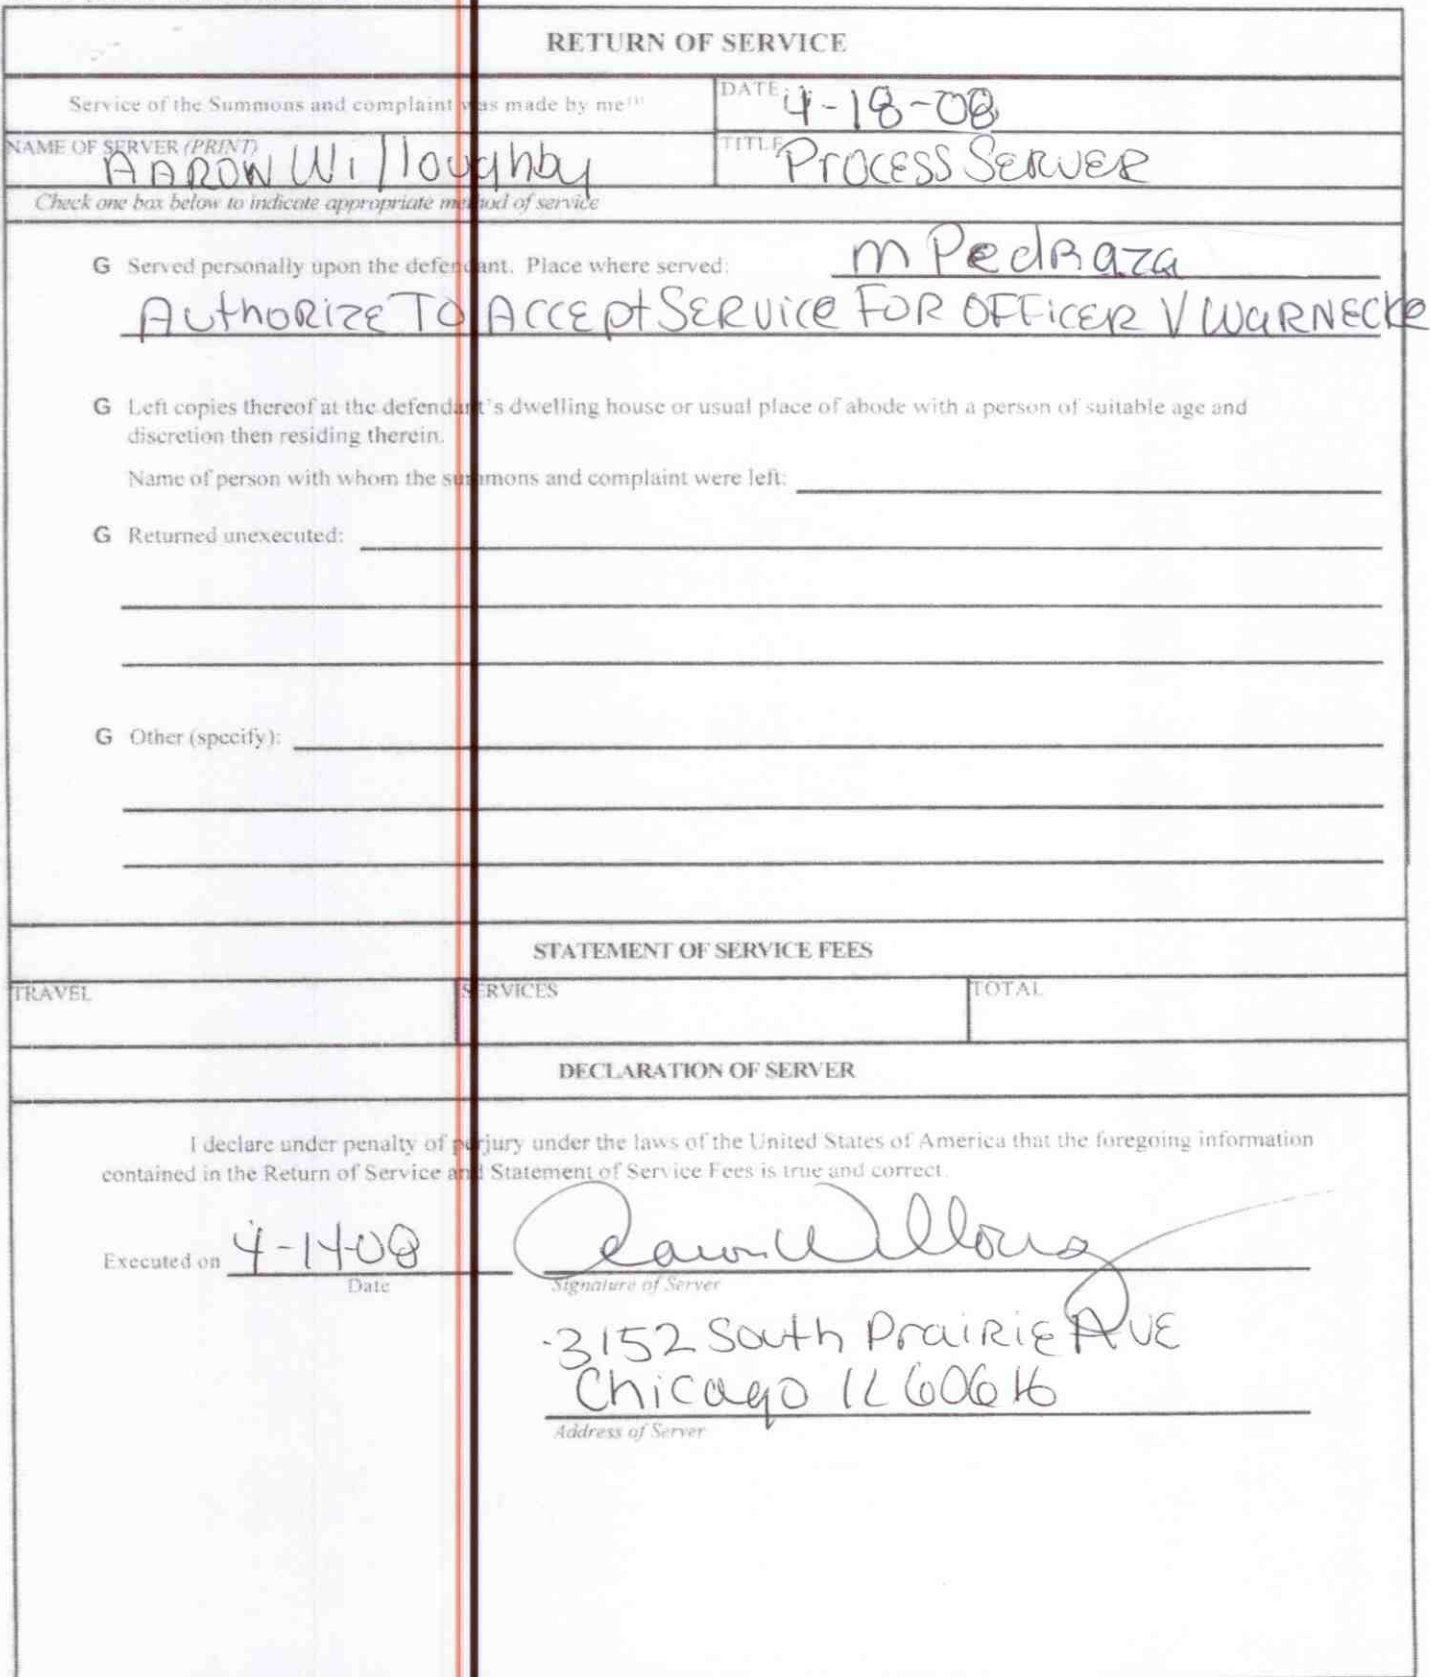 RETURN OF SERVICE
Service of the Summons and complaint was made by me(1)
DATE 4-18-08
NAME OF SERVER (PRINT) AARON Willoughby
TITLE PROCESS SERVER
Check one box below to indicate appropriate method of service
G Served personally upon the defendant. Place where served: M PedRaza
AUthoRIZE TO ACCEpt SERVicE FOR OFFiCER V WaRNECKe
G Left copies thereof at the defendant's dwelling house or usual place of abode with a person of suitable age and
discretion then residing therein.
Name of person with whom the summons and complaint were left:
G Returned unexecuted:
G Other (specify):
STATEMENT OF SERVICE FEES
TRAVEL SERVICES TOTAL
DECLARATION OF SERVER
I declare under penalty of perjury under the laws of the United States of America that the foregoing information
contained in the Return of Service and Statement of Service Fees is true and correct.
Executed on 4-14-08
Date Signature of Server
3152 South PraiRiE AVE
Chicago IL 60616
Address of Server